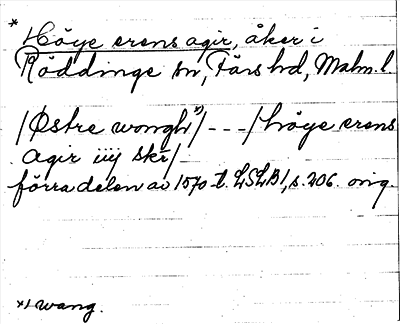 * Höye erens agir, åker i
Röddinge sn, Färs hd, Malm. l.
/Østre wongh x)/ - - - / höye erens
agir iiij skr/ -
förra delen av 1570-t. LSLB1, s. 206. orig.
x) wang.